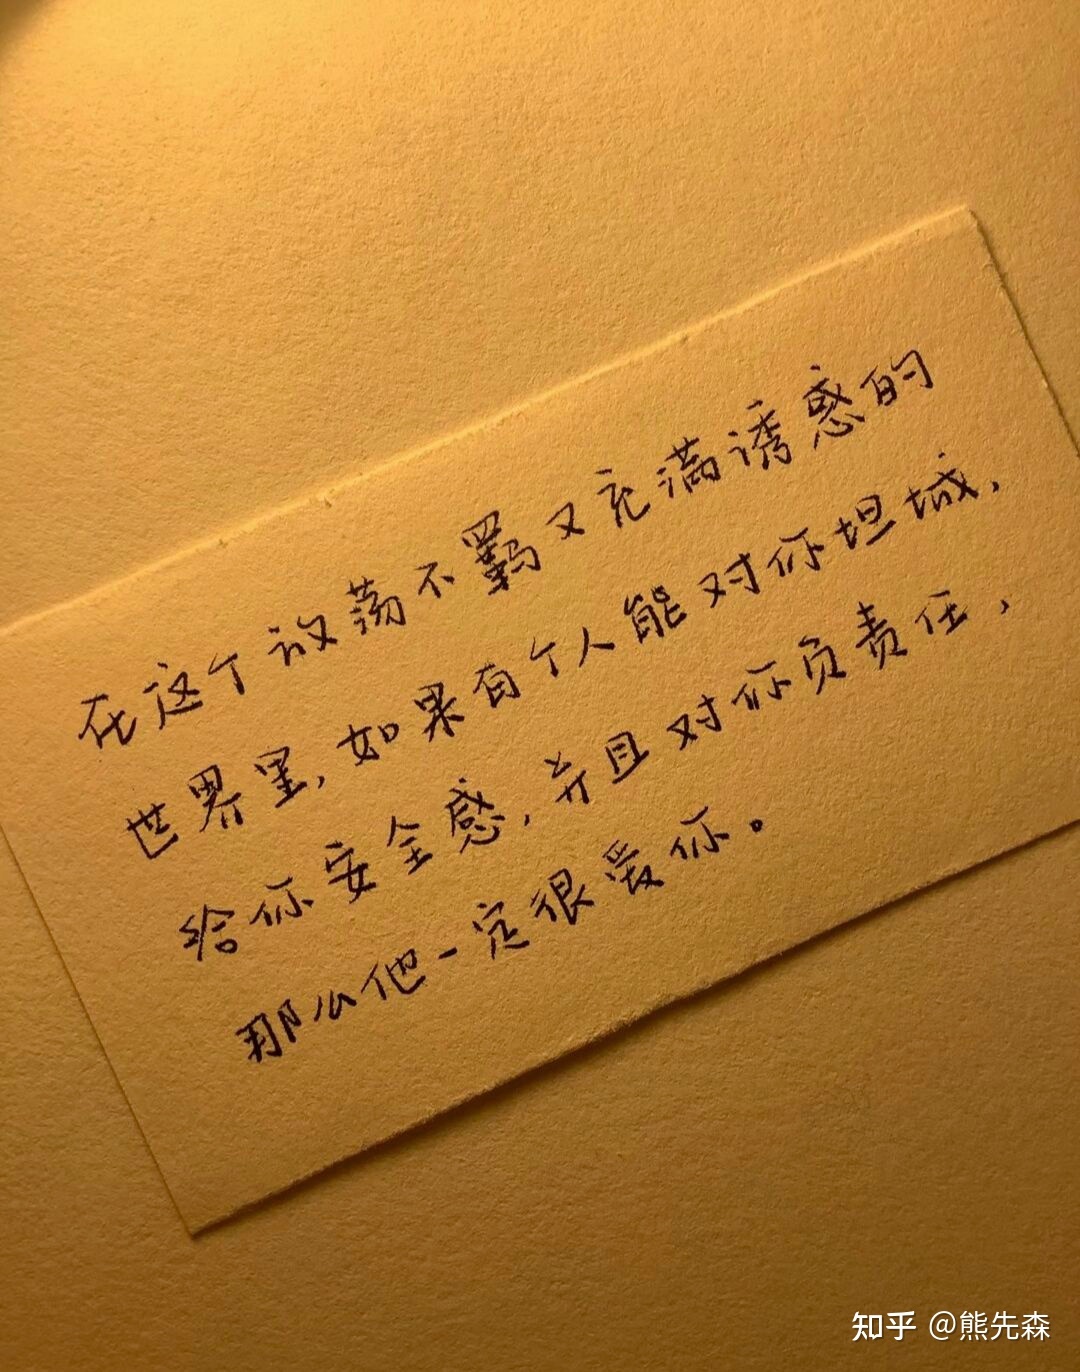 在这个放荡不羁又充满诱惑的
世界里,如果有个人能对你坦城,
给你安全感,并且对你负责任,
那么他一定很爱你。
知乎 @熊先森